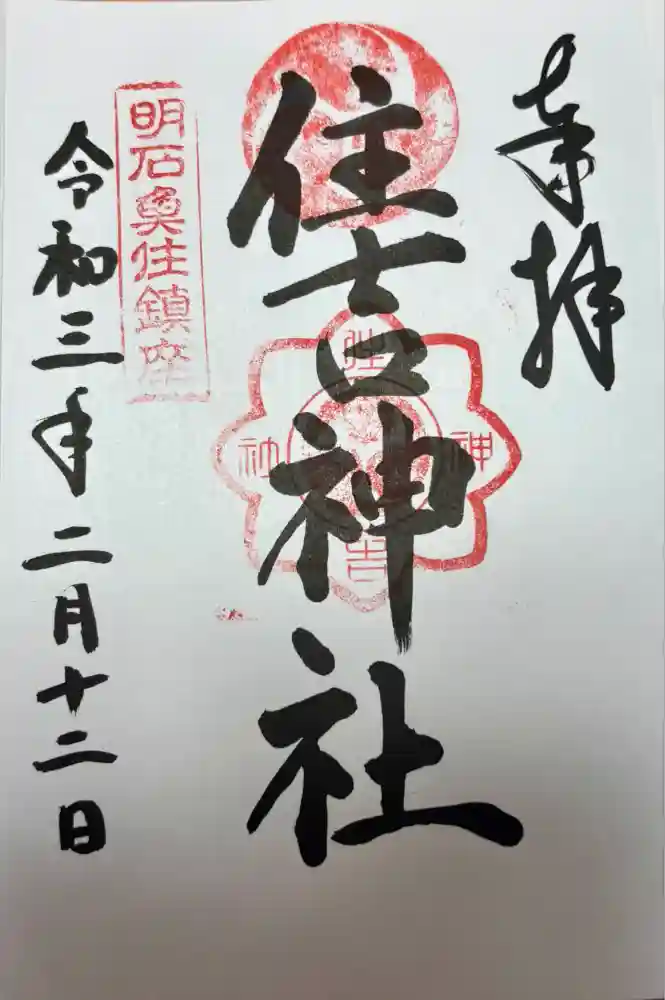 奉拝
住吉神社
住吉神社
明石魚住鎮座
令和三年二月十二日